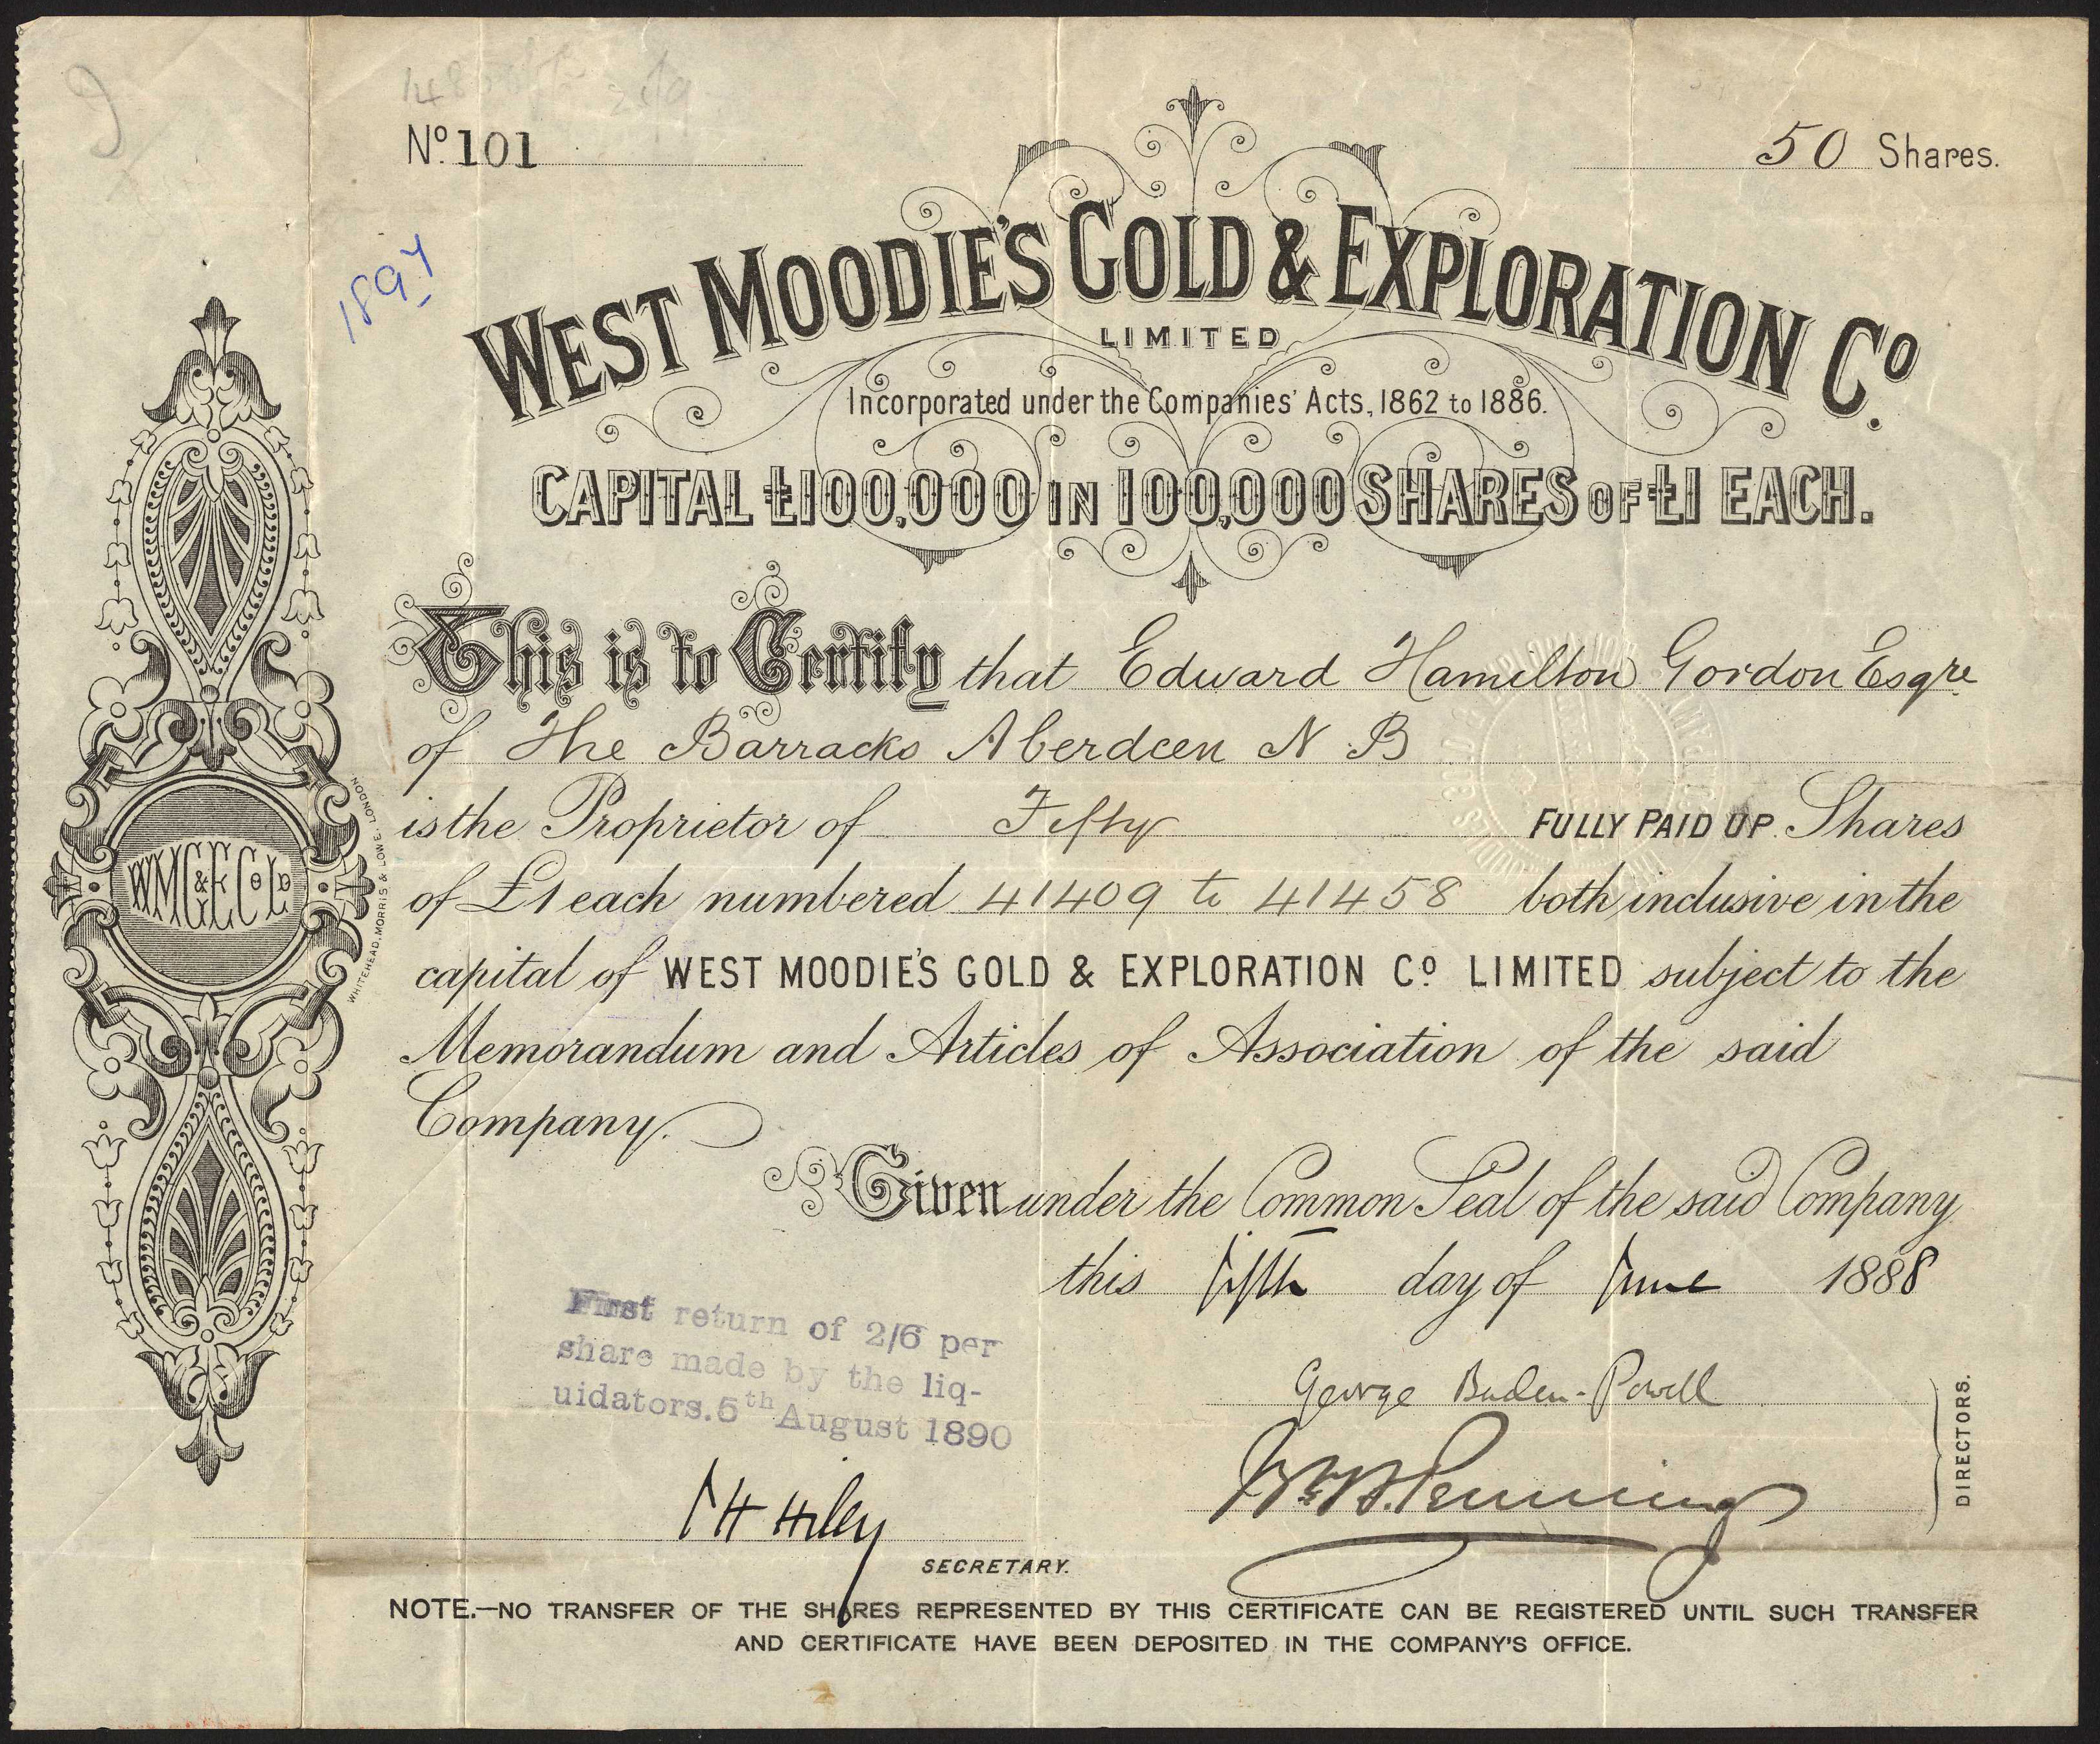 No. 101
50 Shares.
1897
WEST MOODIE'S GOLD & EXPLORATION Co.
LIMITED
Incorporated under the Companies' Acts, 1862 to 1886.
CAPITAL £100,000 IN 100,000 SHARES OF £1 EACH.
This is to Certify that Edward Hamilton Gordon Esqre
of The Barracks Aberdeen N B
is the Proprietor of Fifty FULLY PAID UP Shares
of £1 each numbered 41409 to 41458 both inclusive in the
capital of WEST MOODIE'S GOLD & EXPLORATION Co LIMITED subject to the
Memorandum and Articles of Association of the said
Company.
Given under the Common Seal of the said Company
this fifth day of June 1888
First return of 2/6 per
share made by the liq-
uidators. 5th August 1890
George Baden-Powell
DIRECTORS.
Hiley
SECRETARY.
NOTE.—NO TRANSFER OF THE SHARES REPRESENTED BY THIS CERTIFICATE CAN BE REGISTERED UNTIL SUCH TRANSFER
AND CERTIFICATE HAVE BEEN DEPOSITED IN THE COMPANY'S OFFICE.
WMG&ECoLD
WHITEHEAD, MORRIS & LOWE, LONDON